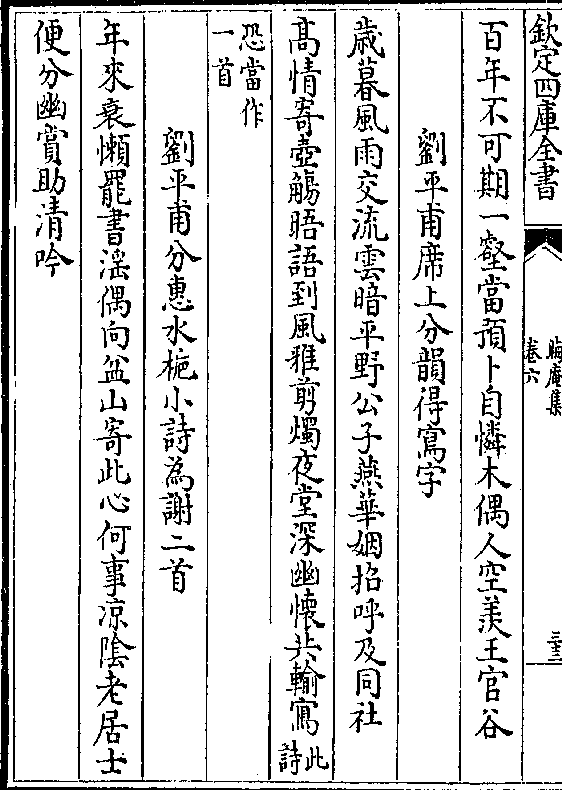 欽定四庫全書
晦庵集
卷六
三十三
百年不可期一壑當預卜自憐木偶人空羨王官谷
劉平甫席上分韻得寫字
歲暮風雨交流雲暗平野公子燕華姻招呼及同社
高情寄壺觴晤語到風雅剪燭夜堂深幽懷共輸寫此詩
恐當作一首
劉平甫分惠水梔小詩為謝二首
年來衰懶罷書滛偶向盆山寄此心何事凉陰老居士
便分幽賞助清吟